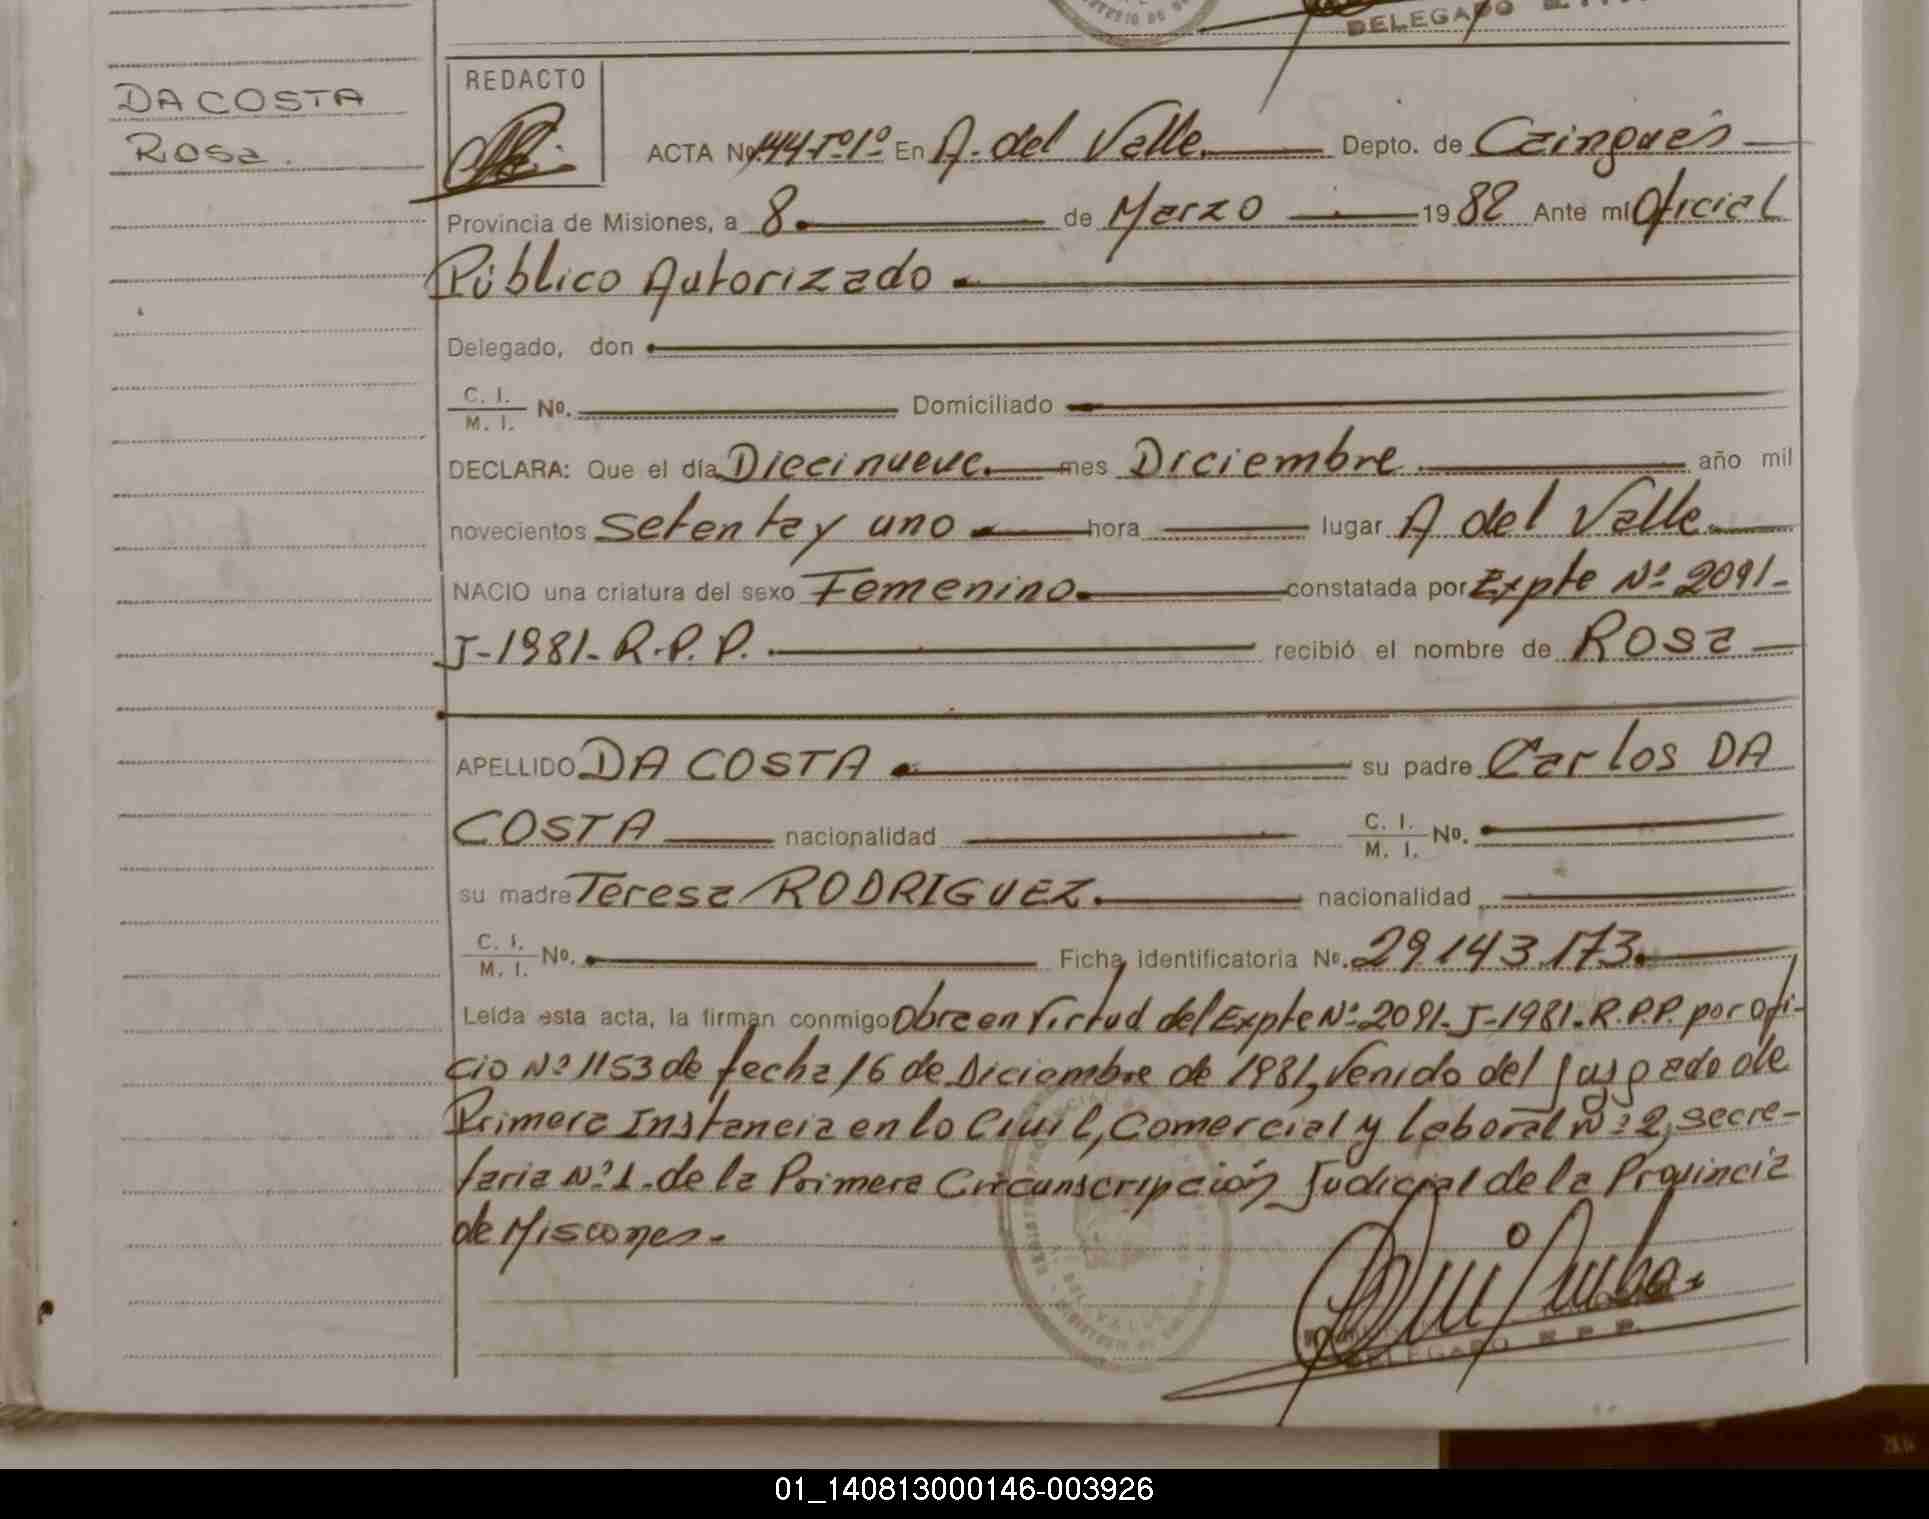 DELEGADO
REDACTO
DA COSTA
Rosa.
ACTA No. 144 Tº 1º En A. del Valle. Depto. de Cainguás
Provincia de Misiones, a 8 de Marzo 19 82 Ante mí Oficial
Público Autorizado
Delegado, don
C. I.
M. I. Nº. Domiciliado
DECLARA: Que el día Diecinueve. mes Diciembre. año mil
novecientos Setenta y uno hora lugar A del Valle.
NACIO una criatura del sexo Femenino. constatada por Expte Nº 2091-
J-1981-R.P.P. recibió el nombre de Rosa
APELLIDO DA COSTA su padre Carlos DA
COSTA nacionalidad C. I.
M. I. Nº.
su madre Teresa RODRIGUEZ. nacionalidad
C. I.
M. I. Nº. Ficha identificatoria Nº. 29.143.173.
Leída esta acta, la firman conmigo Obra en Virtud del Expte Nº 2091-J-1981-R.P.P. por Ofi-
cio Nº 1153 de fecha 16 de Diciembre de 1981, Venido del Juzgado de
Primera Instancia en lo Civil, Comercial y Laboral Nº 2, Secre-
taria Nº 1. de la Primera Circunscripción Judicial de la Provincia
de Misiones.-
DELEGADO R. P. P.
01_140813000146-003926